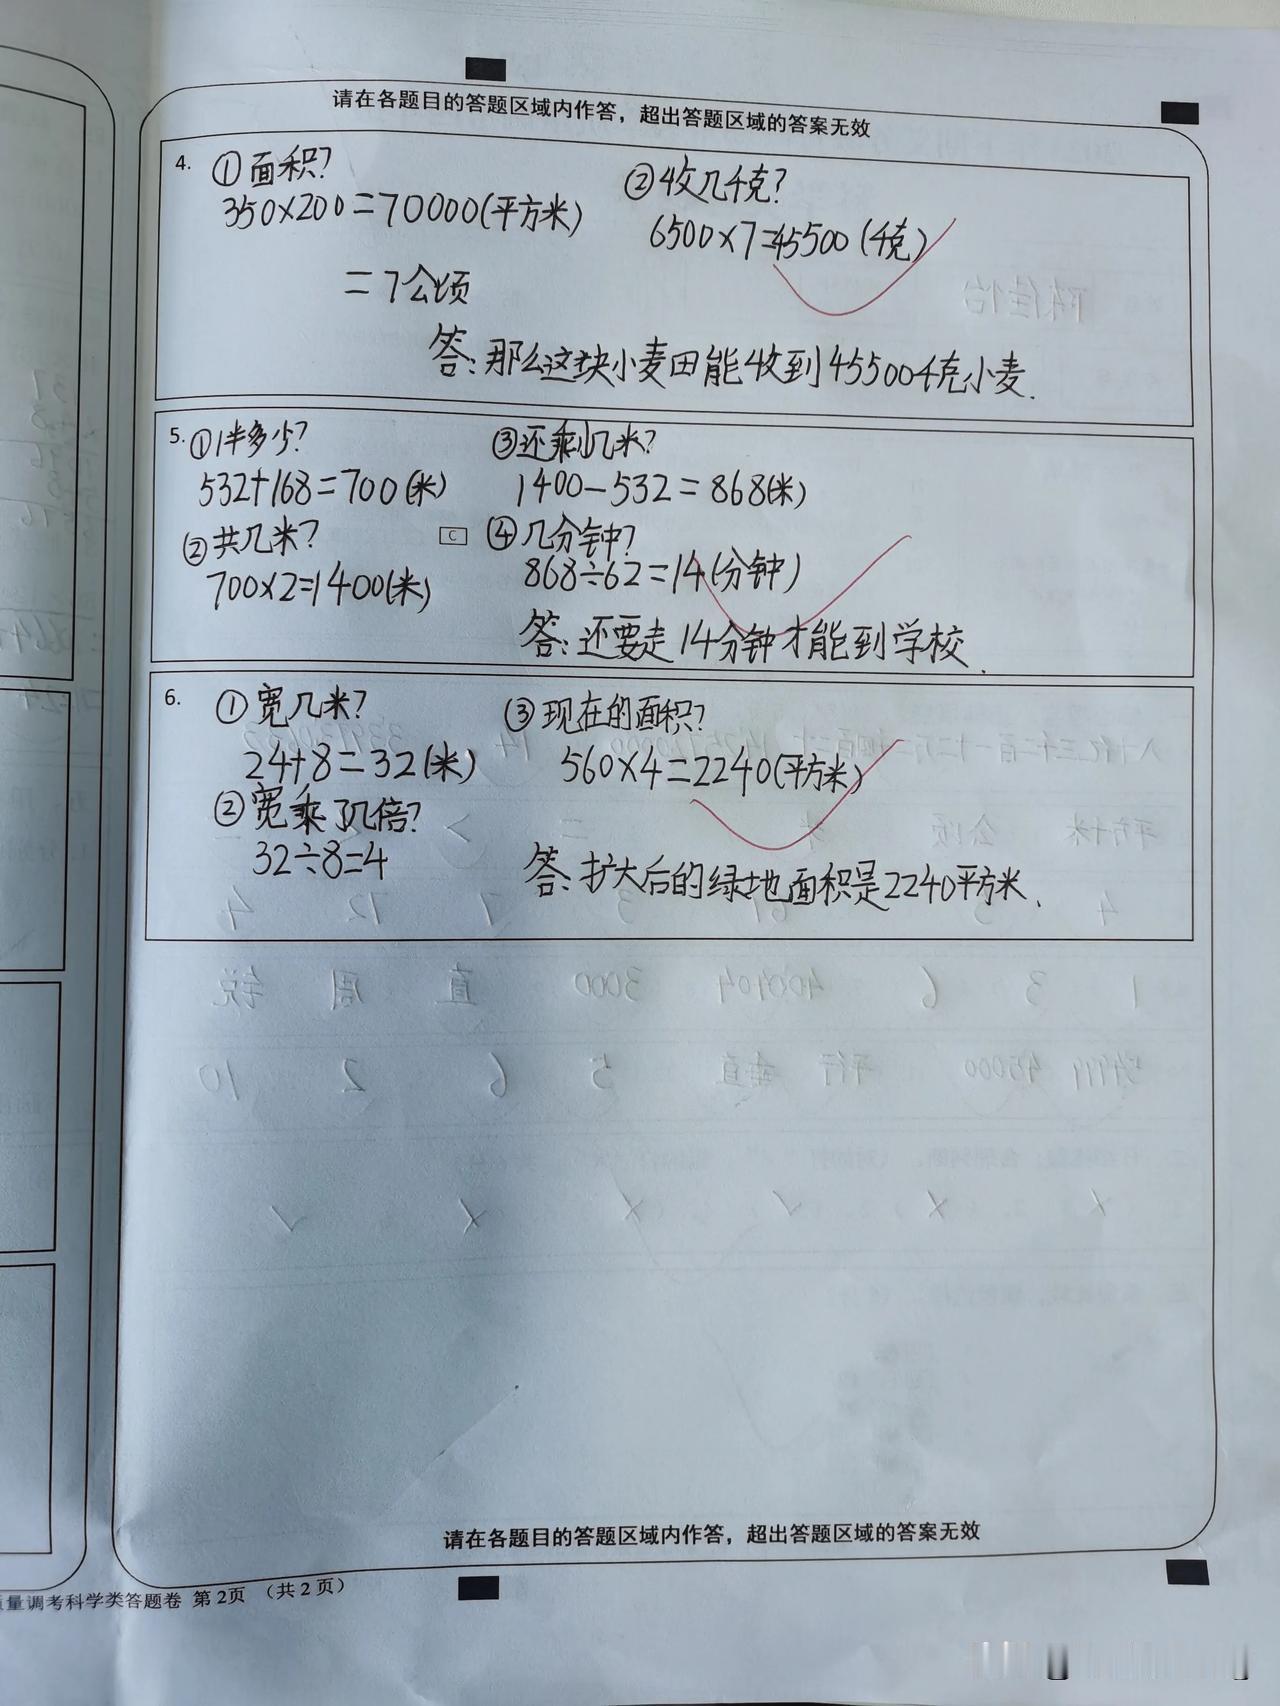 请在各题目的答题区域内作答，超出答题区域的答案无效
4.
①面积？
350×200=70000(平方米)
=7公顷
②收几千克？
6500×7=45500(千克)
答：那么这块小麦田能收到45500千克小麦.
5.
①1半多少？
532+168=700(米)
②共几米？
700×2=1400(米)
③还剩几米？
1400-532=868(米)
C
④几分钟？
868÷62=14(分钟)
答：还要走14分钟才能到学校.
6.
①宽几米？
24+8=32(米)
②宽乘了几倍？
32÷8=4
③现在的面积？
560×4=2240(平方米)
答：扩大后的绿地面积是2240平方米.
请在各题目的答题区域内作答，超出答题区域的答案无效
量调考科学类答题卷 第2页 （共2页）